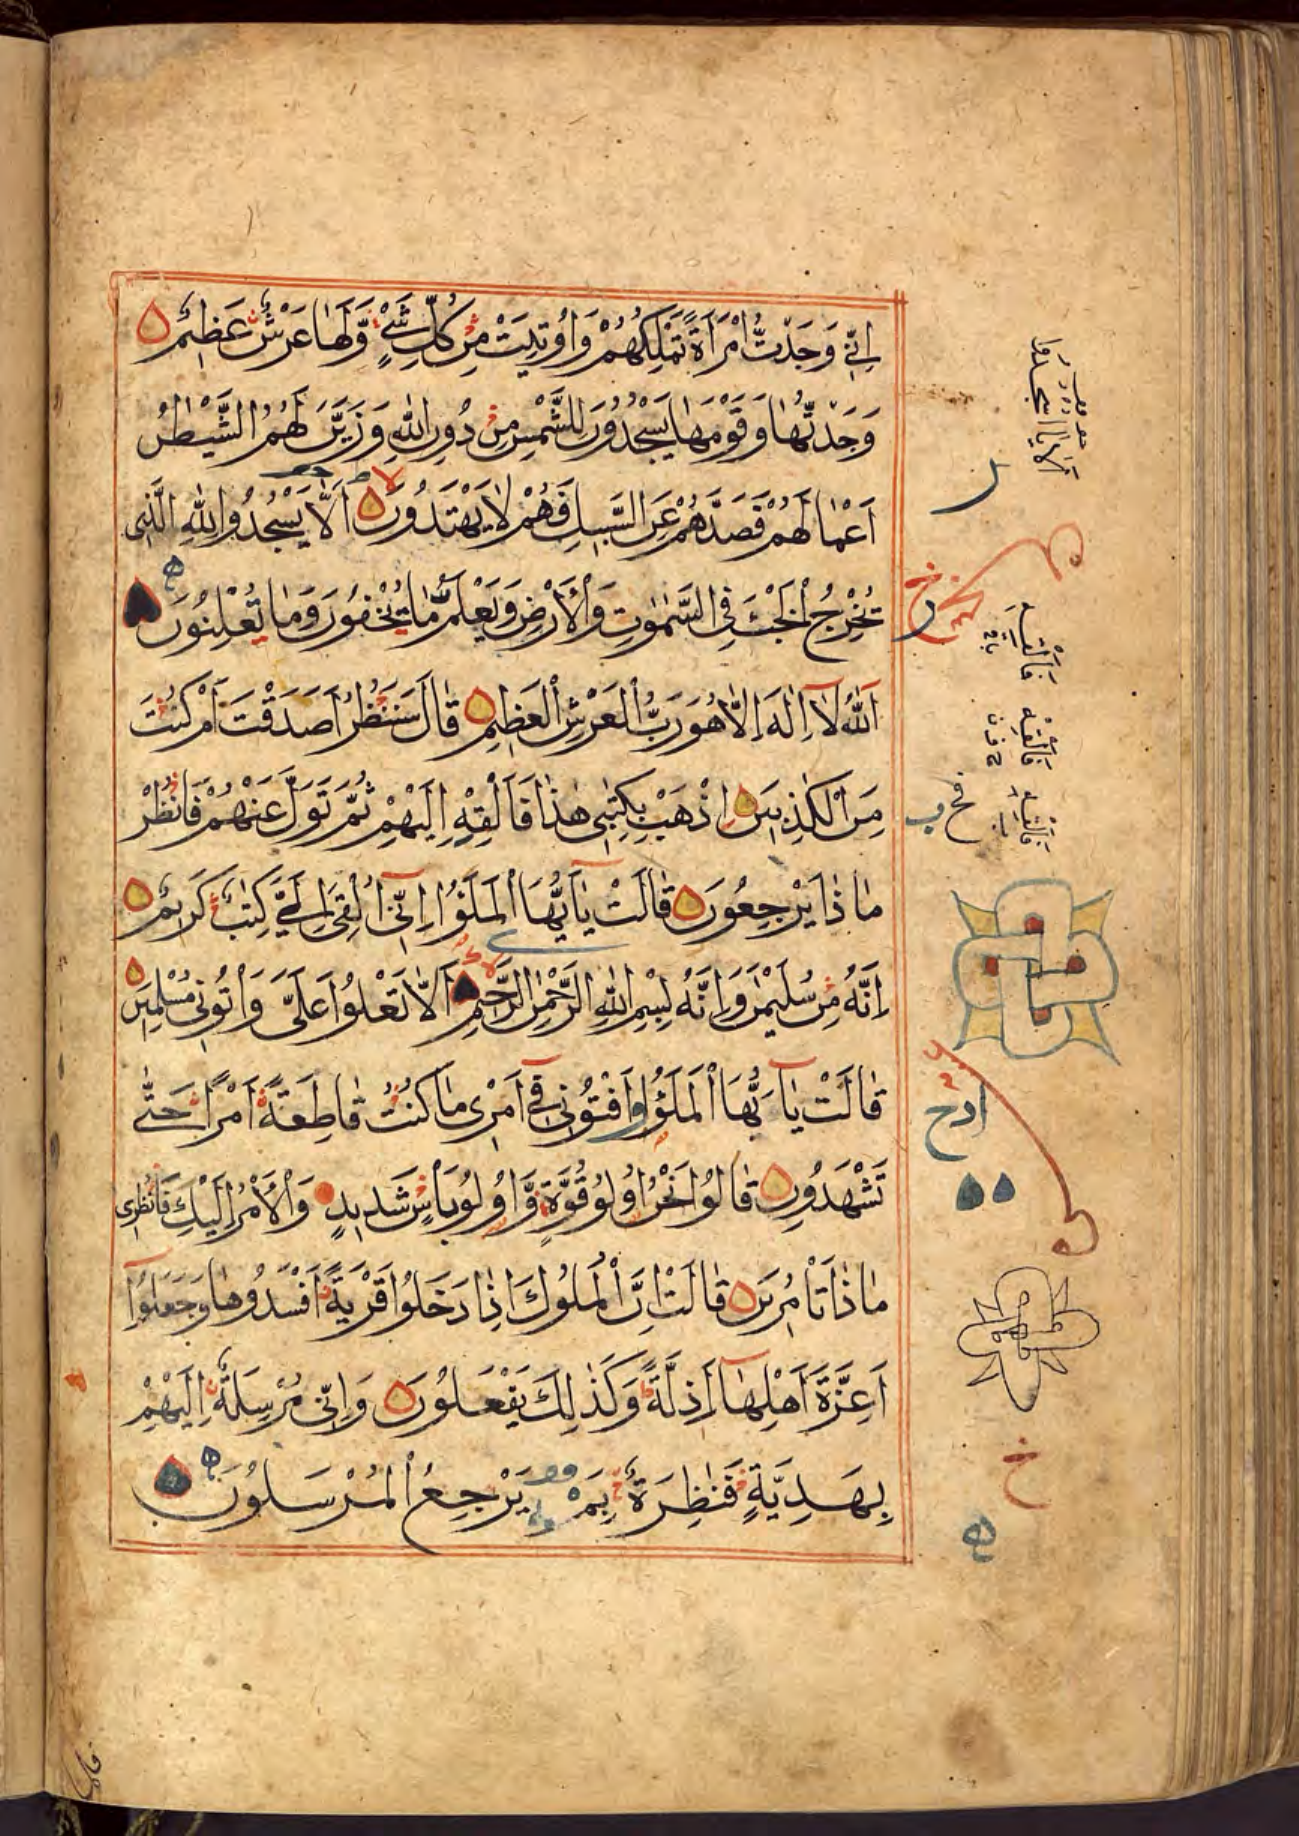 اِنِّي وَجَدْتُّ امْرَاَةً تَمْلِكُهُمْ وَاُوتِيَتْ مِنْ كُلِّ شَيْءٍ وَّلَهَا عَرْشٌ عَظِيْمٌ
وَجَدْتُّهَا وَقَوْمَهَا يَسْجُدُوْنَ لِلشَّمْسِ مِنْ دُوْنِ اللّٰهِ وَزَيَّنَ لَهُمُ الشَّيْطٰنُ
اَعْمَالَهُمْ فَصَدَّهُمْ عَنِ السَّبِيْلِ فَهُمْ لَا يَهْتَدُوْنَ اَلَّا يَسْجُدُوْا لِلّٰهِ الَّذِى
يُخْرِجُ الْخَبْءَ فِى السَّمٰوٰتِ وَالْاَرْضِ وَيَعْلَمُ مَا يُخْفُوْنَ وَمَا يُعْلِنُوْنَ
اَللّٰهُ لَآ اِلٰهَ اِلَّا هُوَ رَبُّ الْعَرْشِ الْعَظِيْمِ قَالَ سَنَنْظُرُ اَصَدَقْتَ اَمْ كُنْتَ
مِنَ الْكٰذِبِيْنَ اِذْهَبْ بِكِتٰبِى هٰذَا فَاَلْقِهْ اِلَيْهِمْ ثُمَّ تَوَلَّ عَنْهُمْ فَانْظُرْ
مَاذَا يَرْجِعُوْنَ قَالَتْ يٰٓاَيُّهَا الْمَلَؤُا اِنِّىٓ اُلْقِىَ اِلَىَّ كِتٰبٌ كَرِيْمٌ
اِنَّهٗ مِنْ سُلَيْمٰنَ وَاِنَّهٗ بِسْمِ اللّٰهِ الرَّحْمٰنِ الرَّحِيْمِ اَلَّا تَعْلُوْا عَلَىَّ وَاْتُوْنِى مُسْلِمِيْنَ
قَالَتْ يٰٓاَيُّهَا الْمَلَؤُا اَفْتُوْنِى فِىٓ اَمْرِى مَا كُنْتُ قَاطِعَةً اَمْرًا حَتّٰى
تَشْهَدُوْنِ قَالُوْا نَحْنُ اُولُوْا قُوَّةٍ وَّاُولُوْا بَاْسٍ شَدِيْدٍ وَالْاَمْرُ اِلَيْكِ فَانْظُرِى
مَاذَا تَاْمُرِيْنَ قَالَتْ اِنَّ الْمُلُوْكَ اِذَا دَخَلُوْا قَرْيَةً اَفْسَدُوْهَا وَجَعَلُوْٓا
اَعِزَّةَ اَهْلِهَآ اَذِلَّةً وَكَذٰلِكَ يَفْعَلُوْنَ وَاِنِّى مُرْسِلَةٌ اِلَيْهِمْ
بِهَدِيَّةٍ فَنٰظِرَةٌ بِمَ يَرْجِعُ الْمُرْسَلُوْنَ